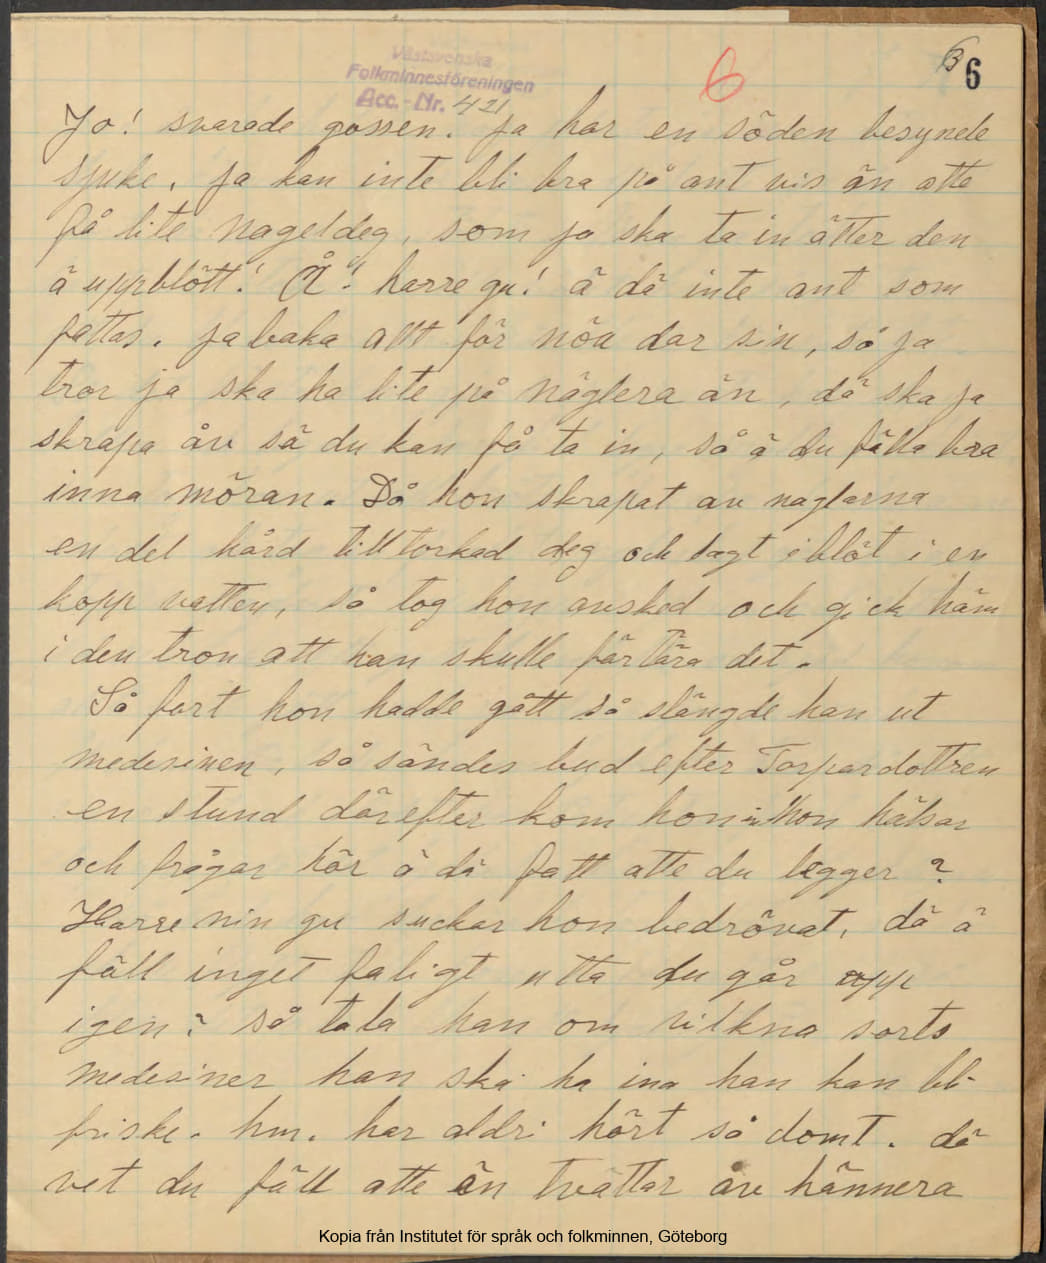 Västsvenska
Folkminnesföreningen
Acc.-Nr. 421
6
B 6
Jo! svarade gossen. ja har en söden besynele
sjuke. ja kan inte bli bra på ant vis än atte
få lite nageldeg, som ja ska ta in ätter den
ä uppblött! Å! harre gu! ä dä inte ant som
fattas. ja baka allt för nöa dar sin, så ja
tror ja ska ha lite på näglera än, dä ska ja
skrapa åv så du kan få ta in, så ä du fälla bra
inna möran. Då hon skrapat av naglarna
en del hård tilltorkad deg och lagt i blöt i en
kopp vatten, så tog hon avsked och gick häm
i den tron att han skulle förtära det.
Så fort hon hadde gått så slängde han ut
medesinen, så sändes bud efter Torpardottren
en stund därefter kom hon in hon hälsar
och frågar hör ä dä fatt atte du legger?
Harre min gu suckar hon bedrövat, dä ä
fäll inget faligt utta du går opp
igen? så tala han om vilkna sorts
medesiner han ska ha ina han kan bli
friske. hm. har aldri hört så domt. dä
vet du fäll atte än tvättar åv hännera
Kopia från Institutet för språk och folkminnen, Göteborg